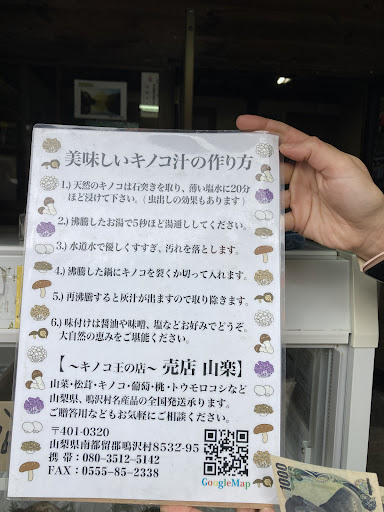 美味しいキノコ汁の作り方
1.) 天然のキノコは石突きを取り、薄い塩水に20分
ほど浸けて下さい。( 虫出しの効果もあります )
2.) 沸騰したお湯で5秒ほど湯通ししてください。
3.) 水道水で優しくすすぎ、汚れを落とします。
4.) 沸騰した鍋にキノコを裂くか切って入れます。
5.) 再沸騰すると灰汁が出ますので取り除きます。
6.) 味付けは醤油や味噌、塩などお好みでどうぞ。
大自然の恵みをご堪能ください。
【 〜キノコ王の店〜 売店 山楽 】
山菜・松茸・キノコ・葡萄・桃・トウモロコシなど
山梨県、鳴沢村名産品の全国発送承ります。
ご贈答用などもお気軽にご相談ください。
〒401-0320
山梨県南都留郡鳴沢村8532-95
携 帯：080-3512-5142
FAX：0555-85-2338
GoogleMap
1000